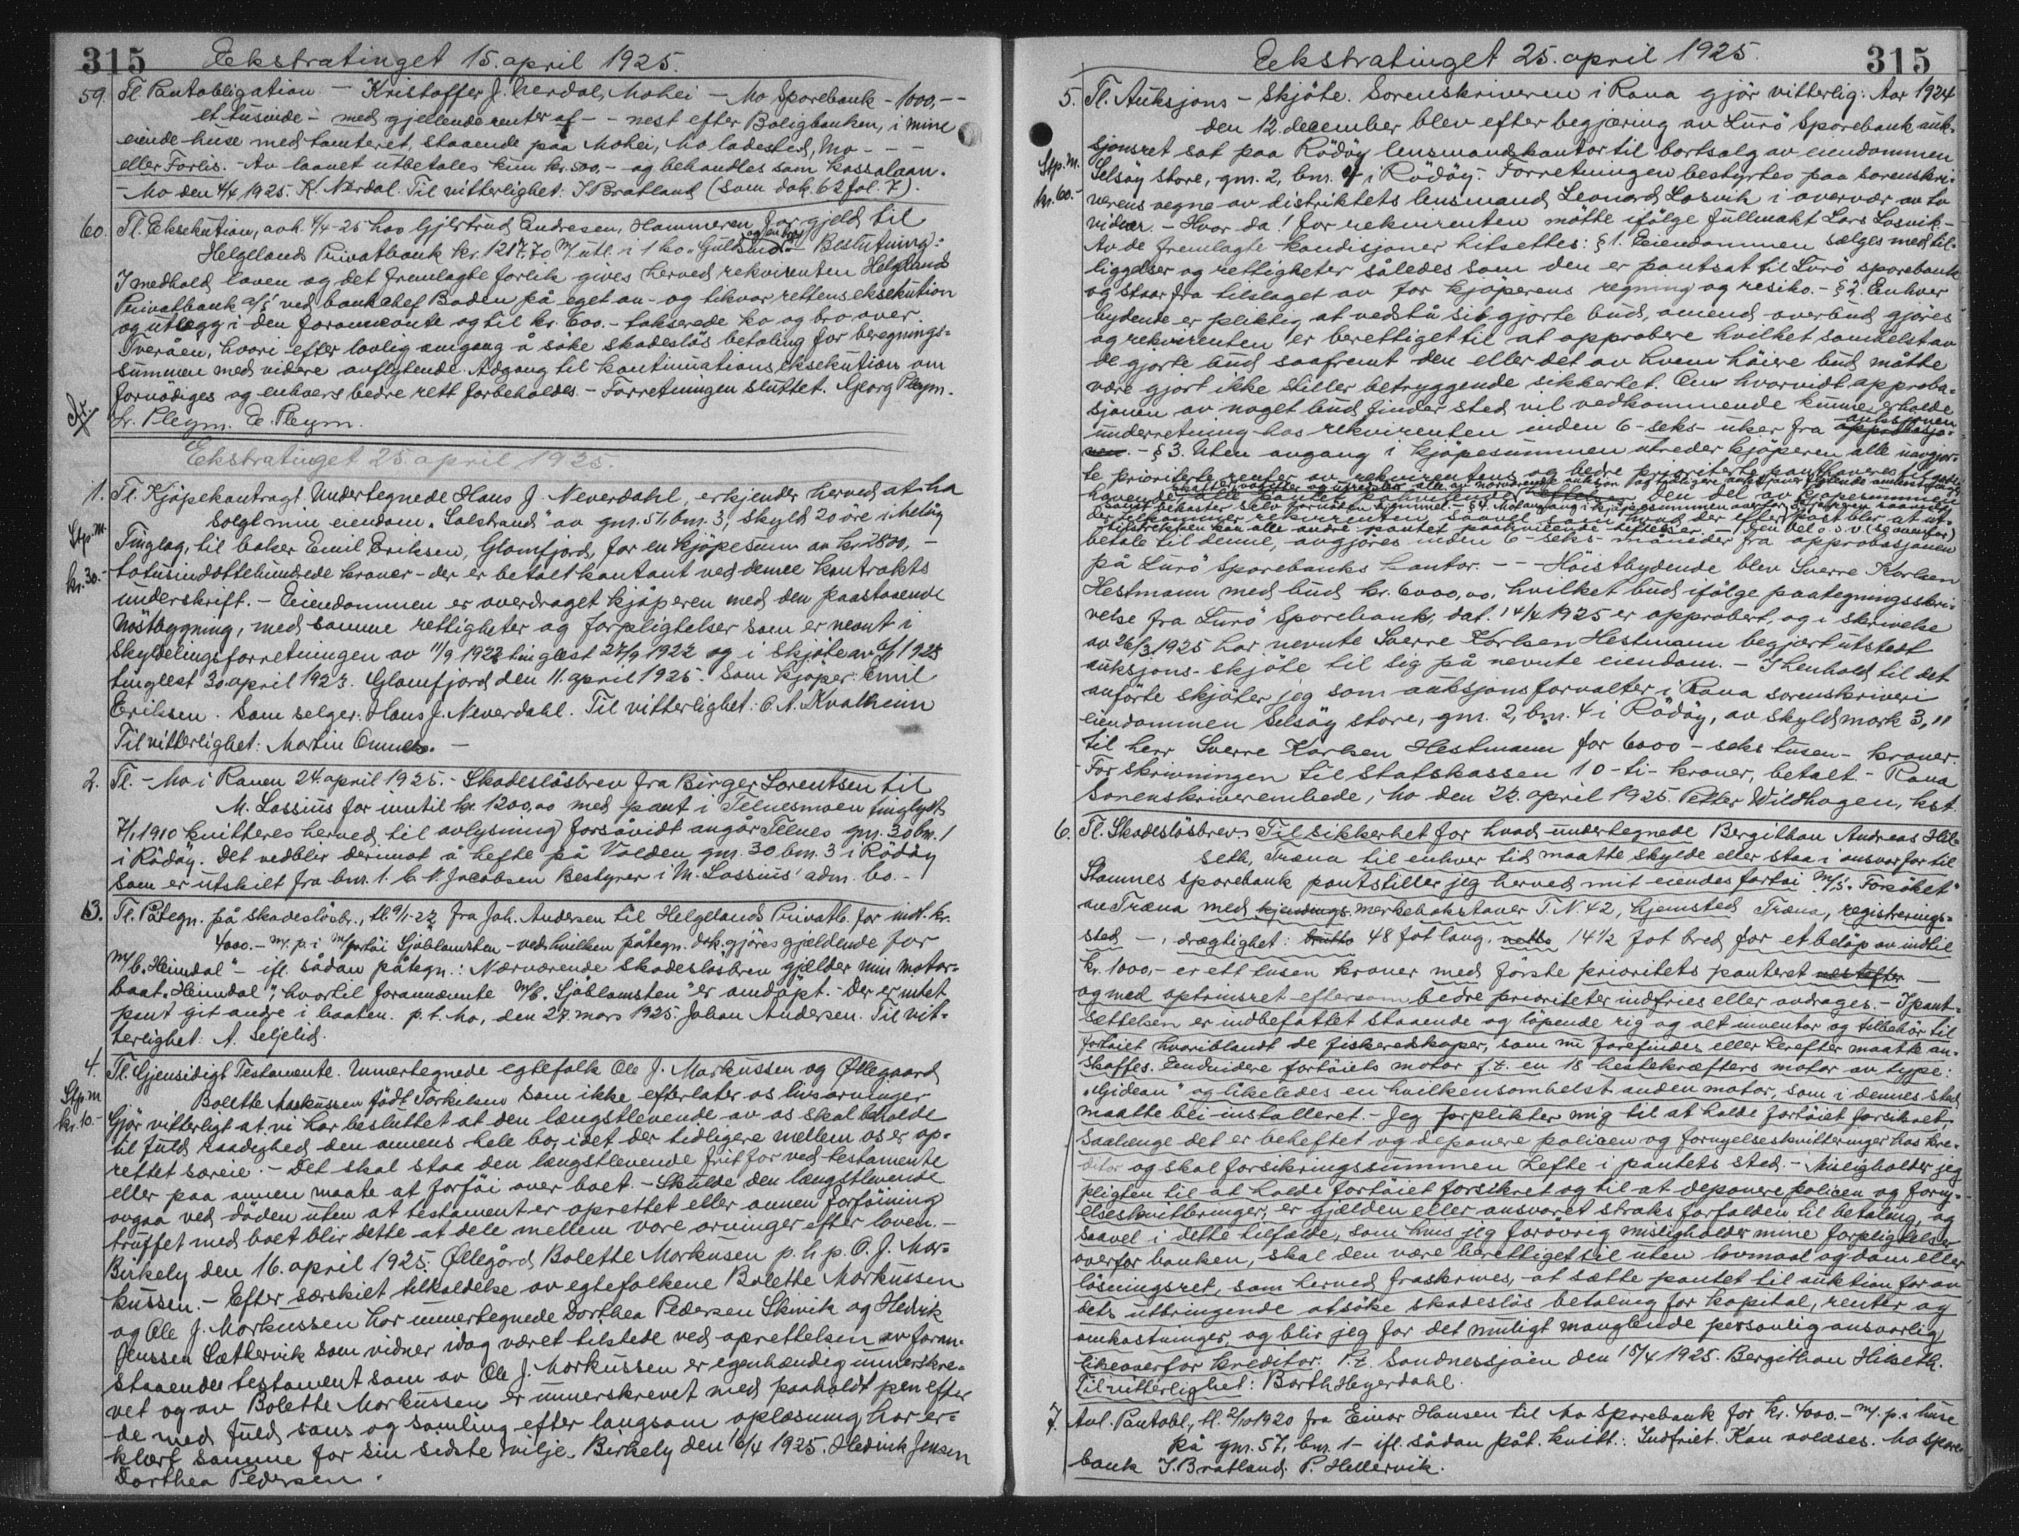 315 Ekstratinget 15. april 1925.
59. Tl. Pantobligation. — Kristoffer J. Nerdal, Mohei — Mo Sparebank - 1000,--
et tusinde - med gjeldende renter af - - nest efter Boligbanken, i mine
eiende huse med tomteret, staaende paa Mohei, Mo ladested, Mo - - -
eller Forlis. Av laanet utbetales kun kr. 500,- og behandles som kassalaan.
- Mo den 4/4 1925. K. Nerdal. Til vitterlighet: J. Bratland (som dok. 62 fol. 7).
60. Tl. Eksekution, avh. 4/4-25 hos Gjertrud Andresen, Hammeren for gjeld til
Helgelands Privatbank kr. 1217.70 m/utl. i 1 ko "Guldsind" og en bro - Beslutning:
I medhold loven og det fremlagte forlik gives herved rekvirenten Helgelands
Privatbank A/S ved bankchef Boden på eget an- og tilsvar rettens eksekution
og utlegg i den foranævnte og til kr. 600.- takserede ko og bro over
Tveråen, hvori efter lovlig omgang å søke skadesløs betaling for beregnings-
summen med videre avflytende. Adgang til kontinuationseksekution om
fornødiges og enhvers bedre rett forbeholdes. - Forretningen sluttet. Georg Pleym.
Fr. Pleym. E. Pleym.
Ekstratinget 25 april 1925.
1. Tl. Kjøpekontragt. Undertegnede Hans J. Neverdahl, erkjender herved at ha
Stp.m. solgt min eiendom "Solstrand" av gnr. 51, bnr. 3, skyld 20 øre i Meløy
Tinglag, til baker Emil Eriksen, Glomfjord, for en kjøpesum av kr. 2800,-
kr. 30.- totusindottehundrede kroner - der er betalt kontant ved denne kontrakts
underskrift. - Eiendommen er overdraget kjøperen med den paastaaende
Nøstbygning, med samme rettigheter og forpligtelser som er nevnt i
skyldelingsforretningen av 11/9 1922 tinglest 27/9 1922 og i skjøte av 6/1 1923
tinglest 30. april 1923. Glomfjord den 11. april 1925. Som kjøper: Emil
Eriksen. Som selger: Hans J. Neverdahl. Til vitterlighet: O. A. Kvalheim
Til vitterlighet: Martin -
2. Tl. - Mo i Ranen 24. april 1925. - Skadesløsbrev fra Birger Lorentsen til
M. Lassius for inntil kr. 1200,00 med pant i Telnesmoen tinglyst
7/1 1910 kvitteres herved til avlysning forsåvidt angår Telnes gnr. 30 bnr. 1
i Rødøy. Det vedblir derimot å hefte på Volden gnr. 30 bnr. 3 i Rødøy
som er utskilt fra bnr. 1. C. N. Jacobsen Bestyrer i M. Lassius' adm. bo. -
3. Tl. Påtegn. på skadesløsbr., tl. 9/1-22 fra Joh. Andersen til Helgelands Privatb. for indt. kr.
4000.- m. p. i m/fartøi Sjøblomsten - ved hvilken påtegn. dok. gjøres gjældende for
m/b. "Heimdal" - ifl. sådan påtegn.: Nærværende skadesløsbrev gjelder min motor-
baat "Heimdal", hvortil forannævnte m/b. "Sjøblomsten" er omdøpt. - Der er intet
pant git andre i baaten. p. t. Mo, den 27. mars 1925. Johan Andersen. Til vit-
terlighet: A. Seljelid.
4. Tl. Gjensidigt Testamente. Undertegnede egtefolk Ole J. Markussen og Øllegaard
Stp.m. Bolette Markussen født Torkilsen som ikke efterlater os livsarvinger
kr. 10.- Gjør vitterligt at vi har besluttet at den længstlevende av os skal beholde
til fuld raadighed den annens hele bo, idet der tidligere mellem os er op-
rettet særeie. - Det skal staa den længstlevende frit for ved testamente
eller paa annen maate at forføi over boet. - Skulde den længstlevende
avgaa ved døden uten at testament er oprettet eller annen forføining
truffet med boet blir dette at dele mellem vore arvinger efter loven. -
Birkely den 16. april 1925. Øllegård Bolette Markusen p. h. p. O. J. Mar-
kussen. - Efter særskiet tilkaldelse av egtefolkene Bolette Markussen
og Ole J. Markussen har undertegnede Dorthea Pedersen Skivik og Hedvik
Jenssen Sættervik som vidner idag været tilstede ved oprettelsen av foran-
staaende testament som av Ole J. Markussen er egenhændig underskre-
vet og av Bolette Markussen er underskrevet med paaholdt pen efter
de med fuld sans og samling efter langsom oplæsning har er-
klært samme for sin sidste vilje. Birkely den 16/4 1925. Hedvik Jensen
Dorthea Pedersen.
Ekstratinget 25. april 1925. 315
5. Tl. Auksjons-skjøte. Sorenskriveren i Rana gjør vitterlig: Aar 1924
den 12. december blev efter begjæring av Lurø Sparebank auk-
Stp.m. sjonsret sat paa Rødøy lensmandskontor til bortsalg av eiendommen
kr. 60.- Selsøy store, gnr. 2, bnr. 4 i Rødøy. - Forretningen bestyrtes paa sorenskri-
verens vegne av distriktets lensmand Leonard Losvik i overvær av to
vidner. - Hvor da! for rekvirenten møtte ifølge fullmakt Lars Losvik. -
Av de fremlagte kondisjoner hitsettes: § 1. Eiendommen sælges med til-
liggelser og rettigheter således som den er pantsat til Lurø sparebank
og staar fra tilslaget av for kjøperens regning og resiko. - § 2. Enhver
bydende er pliktig at vedstå sit gjorte bud, omend overbud gjøres
og rekvirenten er berettiget til at approbere hvilket somhelst av
de gjorte bud saafremt den eller det av hvem høiere bud måtte
være gjort ikke stiller betryggende sikkerhet. Om hvorvidt approba-
sjonen av noget bud finder sted vil vedkommende kunne erholde
underretning hos rekvirenten inden 6 - seks - uker fra auksjonen
. - § 3. Uten avgang i kjøpesummen utreder kjøperen alle uavgjor-
te prioriterte renter av rekvirentens og bedre prioriterte panthaveres
betale til denne, avgjøres inden 6 - seks - måneder fra approbasjonen
på Lurø Sparebanks kontor. - - Høistbydende blev Sverre Karlsen
Hestmann med bud kr. 6000,00, hvilket bud ifølge paategningsskri-
velse fra Lurø Sparebank, dat. 14/4 1925 er approbert, og i skrivelse
av 26/3 1925 har nevnte Sverre Karlsen Hestmann begjært utstedt
auksjons-skjøte til sig på nevnte eiendom. - I henhold til det
anførte skjøter jeg som auksjonsforvalter i Rana sorenskriveri
eiendommen Selsøy store, gnr. 2, bnr. 4 i Rødøy, av skyldmark 3,11
til herr Sverre Karlsen Hestmann for 6000 - seks tusen - kroner.
For skrivningen til statskassen 10 - ti - kroner, betalt. - Rana
Sorenskriverembede, Mo den 22. april 1925. Petter Wildhagen, kst.
6. Tl. Skadesløsbrev. Til sikkerhet for hvad undertegnede Bergithon Andreas Hil-
seth, Træna til enhver tid maatte skylde eller staa i ansvar for til
Stamnes sparebank pantstiller jeg herved mit eiendes fartøi m/s. "Forsøket"
av Træna med kjendings merkebokstaver T. N. 42, hjemsted Træna, registrerings-
sted -, drægtighet: brutto 48 fot lang, netto 14 1/2 fot bred for et beløp av indtil
kr. 1000,- er ett tusen kroner med første prioritets panteret næst efter -
og med optrinsret eftersom bedre prioriteter indfries eller avdrages. - I pant-
settelsen er indbefattet staaende og løpende rig og alt inventar og tilbehør til
fartøiet hvoriblandt de fiskeredskaper, som nu forefindes eller herefter maatte an-
skaffes. Endvidere fartøiets motor f. t. en 18 hestekræfters motor av type:
"Gideon" og likeledes en hvilkensomhelst anden motor, som i dennes sted
maatte bli installeret. - Jeg forplikter mig til at holde fartøiet forsikret,
saalenge det er beheftet og deponere policen og fornyelseskvitteringer hos kre-
ditor og skal forsikringssummen hefte i pantets sted. - Misligholder jeg
pligten til at holde fartøiet forsikret og til at deponere policen og forny-
elseskvitteringer, er gjælden eller ansvaret straks forfalden til betaling, og
saavel i dette tilfælde, som hvis jeg forøvrig misligholder mine forpligtelser
overfor banken, skal den være berettiget til uten lovmaal og dom eller
løsningsret, som herved fraskrives, at sætte pantet til auktion for av
dets utbringende at søke skadesløs betaling for kapital, renter og
omkostninger, og blir jeg for det muligt manglende personlig ansvarlig
likeoverfor kreditor. P.t. Sandnessjøen den 15/4 1925. Bergithon Hilseth.
Til vitterlighet: Barth Heyerdahl.
7. Avl. Pantobl., tl. 2/10 1920 fra Einar Hansen til Mo sparebank for kr. 4000.- m. p. i huse
på gnr. 57, bnr. 1 - ifl. sådan påt. kvitt.: Indfriet. Kan avlæses. Mo spare-
bank J. Bratland. P. Hellervik.